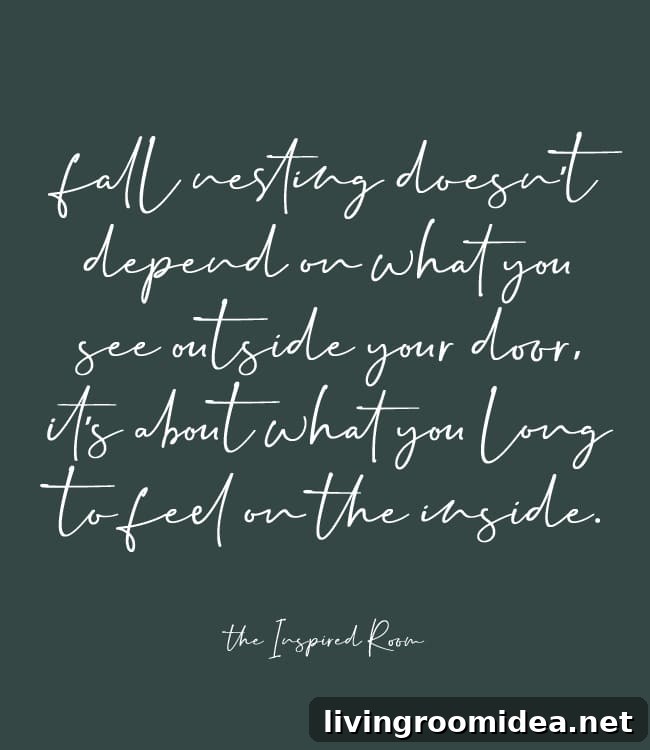 fall nesting doesn't
depend on what you
see outside your door,
it's about what you long
to feel on the inside.
the Inspired Room
livingroomidea.net